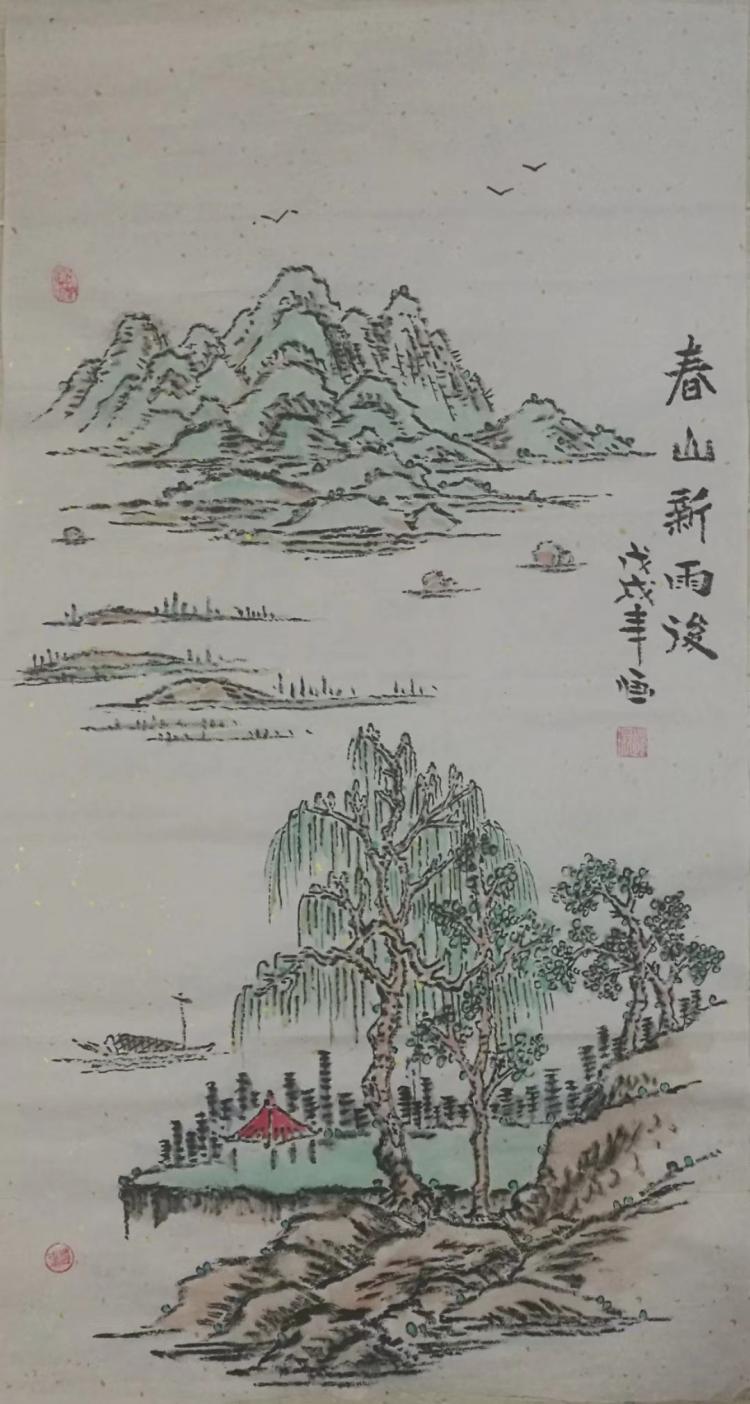 春山新雨後
戊戌年画